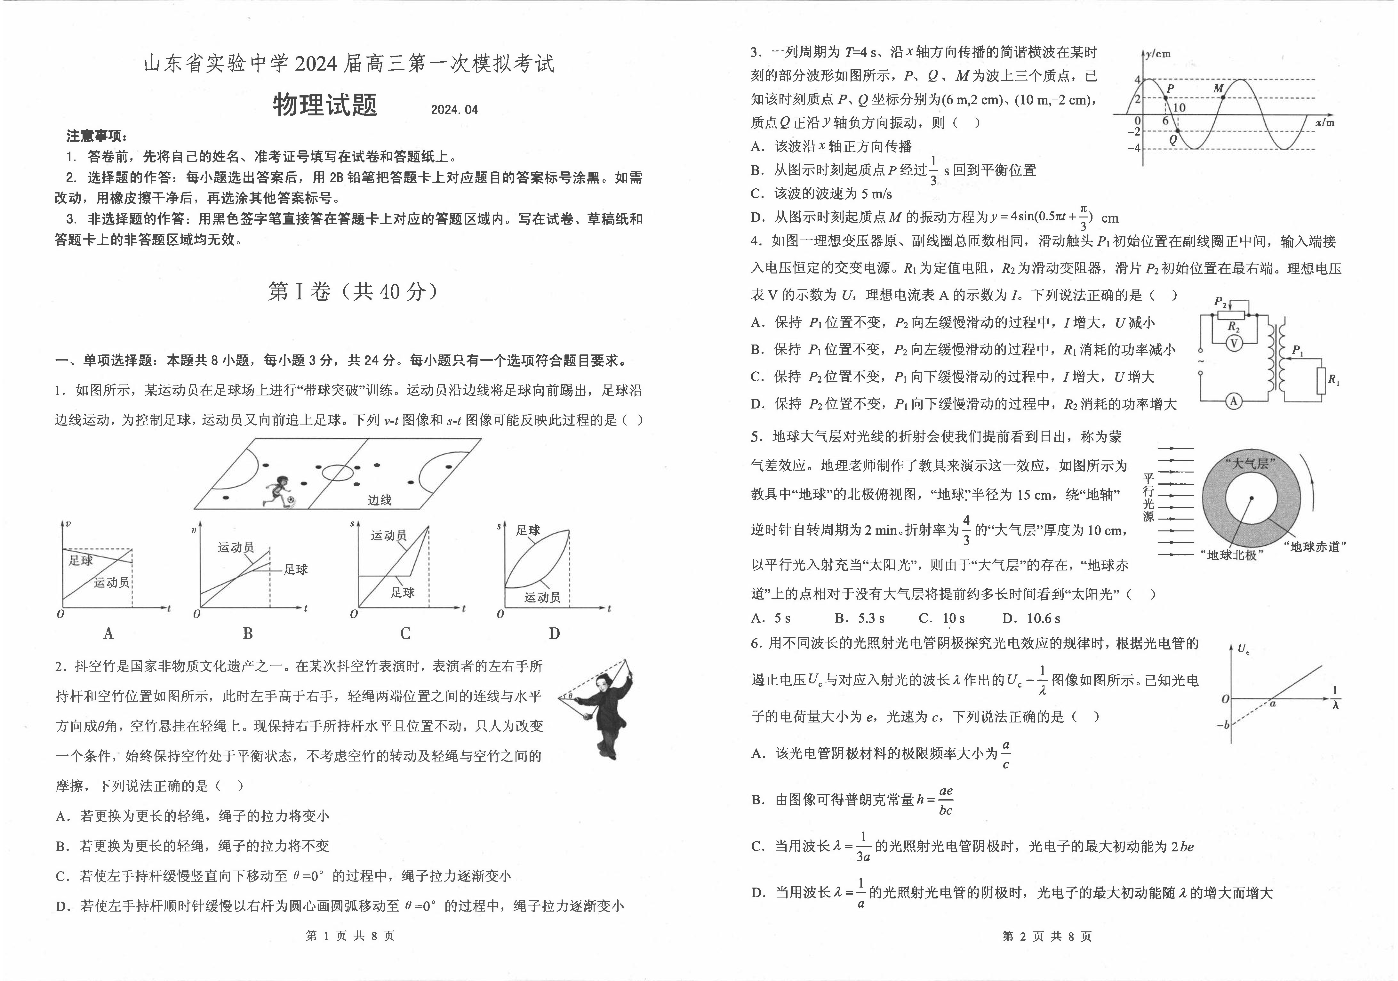 山东省实验中学2024届高三第一次模拟考试
物理试题 2024.04
注意事项：
1. 答卷前，先将自己的姓名、准考证号填写在试卷和答题纸上。
2. 选择题的作答：每小题选出答案后，用2B铅笔把答题卡上对应题目的答案标号涂黑。如需
改动，用橡皮擦干净后，再选涂其他答案标号。
3. 非选择题的作答：用黑色签字笔直接答在答题卡上对应的答题区域内。写在试卷、草稿纸和
答题卡上的非答题区域均无效。
第Ⅰ卷（共40分）
一、单项选择题：本题共8小题，每小题3分，共24分。每小题只有一个选项符合题目要求。
1．如图所示，某运动员在足球场上进行“带球突破”训练。运动员沿边线将足球向前踢出，足球沿
边线运动，为控制足球，运动员又向前追上足球。下列 v-t 图像和 s-t 图像可能反映此过程的是（ ）
边线
v 足球 运动员 O t
v 运动员 足球 O t
s 运动员 足球 O t
s 足球 运动员 O t
A B C D
2．抖空竹是国家非物质文化遗产之一。在某次抖空竹表演时，表演者的左右手所
持杆和空竹位置如图所示，此时左手高于右手，轻绳两端位置之间的连线与水平
方向成θ角，空竹悬挂在轻绳上。现保持右手所持杆水平且位置不动，只人为改变
一个条件，始终保持空竹处于平衡状态，不考虑空竹的转动及轻绳与空竹之间的
摩擦，下列说法正确的是（ ）
θ
A．若更换为更长的轻绳，绳子的拉力将变小
B．若更换为更长的轻绳，绳子的拉力将不变
C．若使左手持杆缓慢竖直向下移动至 θ=0° 的过程中，绳子拉力逐渐变小
D．若使左手持杆顺时针缓慢以右杆为圆心画圆弧移动至 θ=0° 的过程中，绳子拉力逐渐变小
第 1 页 共 8 页
3．一列周期为 T=4 s、沿 x 轴方向传播的简谐横波在某时
刻的部分波形如图所示，P、Q、M 为波上三个质点，已
知该时刻质点 P、Q 坐标分别为(6 m,2 cm)、(10 m, 2 cm)，
质点 Q 正沿 y 轴负方向振动，则（ ）
A．该波沿 x 轴正方向传播
B．从图示时刻起质点 P 经过 1/3 s 回到平衡位置
C．该波的波速为 5 m/s
D．从图示时刻起质点 M 的振动方程为 y=4sin(0.5πt+π/3) cm
y/cm
4
2 P M
10
0 6 x/m
-2 Q
-4
4．如图一理想变压器原、副线圈总匝数相同，滑动触头 P₁ 初始位置在副线圈正中间，输入端接
入电压恒定的交变电源。R₁ 为定值电阻，R₂ 为滑动变阻器，滑片 P₂ 初始位置在最右端。理想电压
表 V 的示数为 U，理想电流表 A 的示数为 I。下列说法正确的是（ ）
A．保持 P₁ 位置不变，P₂ 向左缓慢滑动的过程中，I 增大，U 减小
B．保持 P₁ 位置不变，P₂ 向左缓慢滑动的过程中，R₁ 消耗的功率减小
C．保持 P₂ 位置不变，P₁ 向下缓慢滑动的过程中，I 增大，U 增大
D．保持 P₂ 位置不变，P₁ 向下缓慢滑动的过程中，R₂ 消耗的功率增大
P₂
R₂
V
~
P₁
R₁
A
5．地球大气层对光线的折射会使我们提前看到日出，称为蒙
气差效应。地理老师制作了教具来演示这一效应，如图所示为
教具中“地球”的北极俯视图，“地球”半径为 15 cm，绕“地轴”
逆时针自转周期为 2 min。折射率为 4/3 的“大气层”厚度为 10 cm，
以平行光入射充当“太阳光”，则由于“大气层”的存在，“地球赤
道”上的点相对于没有大气层将提前约多长时间看到“太阳光”（ ）
A．5 s B．5.3 s C．10 s D．10.6 s
平行光源
“大气层”
“地球北极”
“地球赤道”
6．用不同波长的光照射光电管阴极探究光电效应的规律时，根据光电管的
遏止电压 Uc 与对应入射光的波长 λ 作出的 Uc－1/λ 图像如图所示。已知光电
子的电荷量大小为 e，光速为 c，下列说法正确的是（ ）
Uc
O a 1/λ
-b
A．该光电管阴极材料的极限频率大小为 a/c
B．由图像可得普朗克常量 h=ae/bc
C．当用波长 λ=1/3a 的光照射光电管阴极时，光电子的最大初动能为 2be
D．当用波长 λ=1/a 的光照射光电管的阴极时，光电子的最大初动能随 λ 的增大而增大
第 2 页 共 8 页